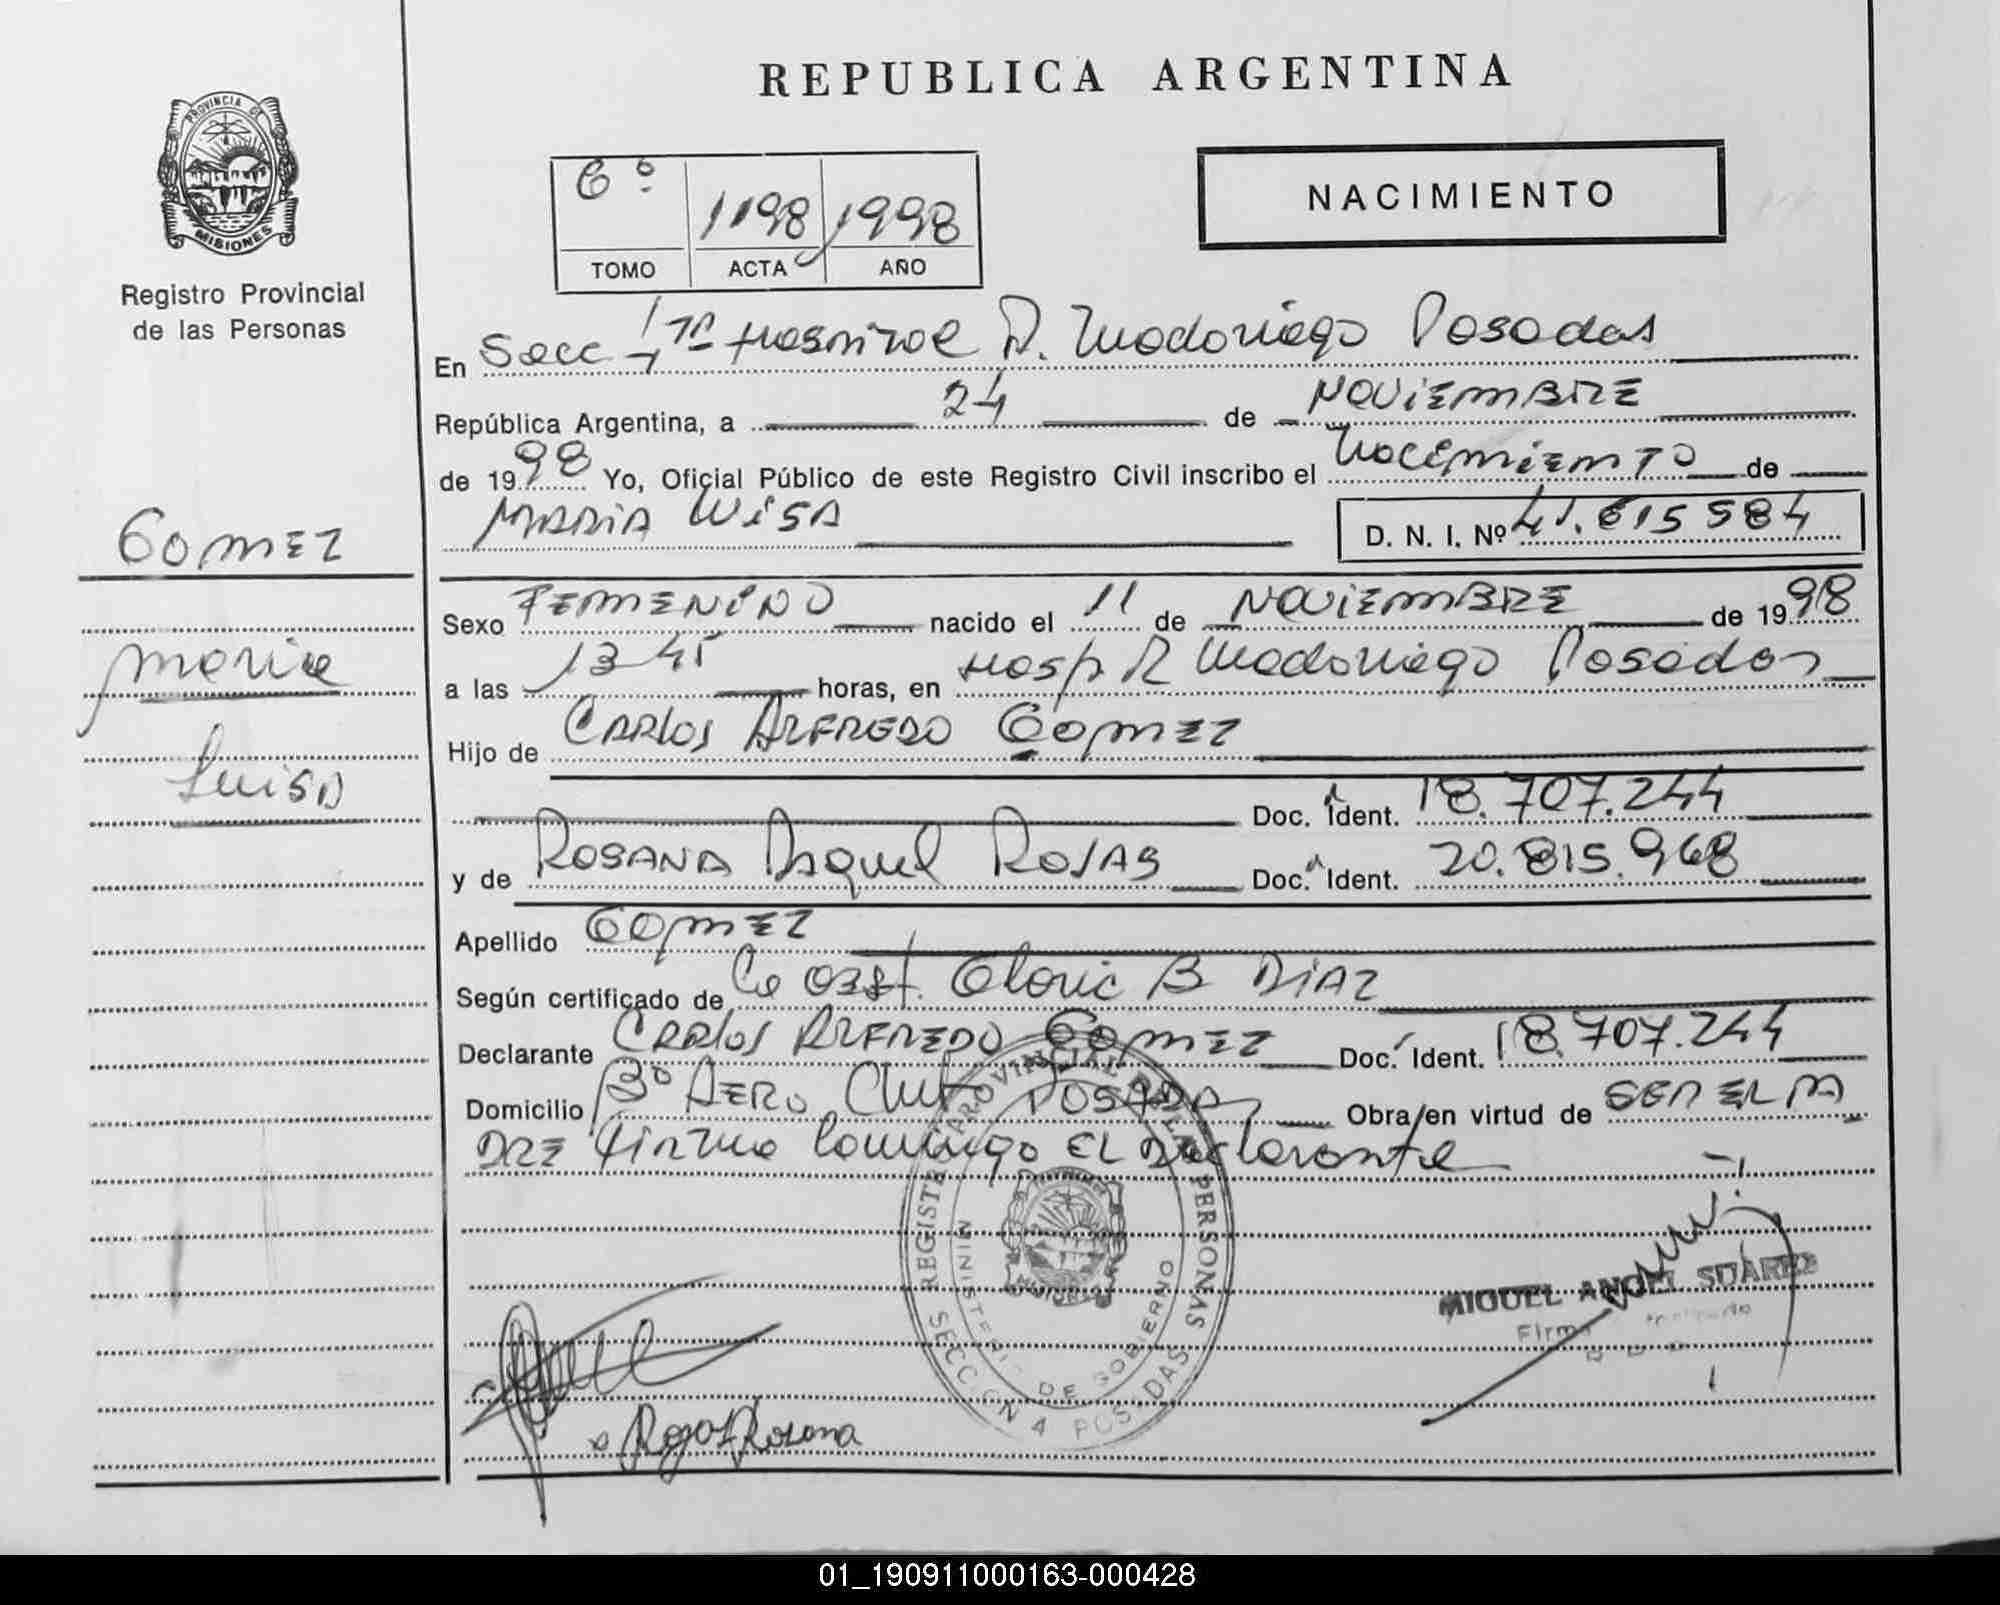 REPUBLICA ARGENTINA
PROVINCIA DE
MISIONES
Registro Provincial
de las Personas
6º 1198 1998
TOMO ACTA AÑO
NACIMIENTO
En Secc Hospital R. Madariaga Posadas
República Argentina, a 24 de NOVIEMBRE
de 1998 Yo, Oficial Público de este Registro Civil inscribo el Nacimiento de
MARIA LUISA D. N. I. Nº 41.615584
GOMEZ
Maria
Luisa
Sexo FEMENINO nacido el 11 de NOVIEMBRE de 1998
a las 13-45 horas, en Hosp R Madariaga Posadas
Hijo de CARLOS ALFREDO GOMEZ
Doc. Ident. 18.707.244
y de ROSANA Raquel ROJAS Doc. Ident. 20.815.968
Apellido GOMEZ
Según certificado de La Obst. Gloria B DIAZ
Declarante CARLOS ALFREDO GOMEZ Doc. Ident. 18.707.244
Domicilio Bº AERO Club POSADAS Obra/en virtud de SER EL PA
DRE Firma Conmigo EL Declarante
REGISTRO PROVINCIAL DE LAS PERSONAS
MINISTERIO DE GOBIERNO
SECCION 4 POSADAS
MISIONES
MIGUEL ANGEL SUAREZ
Firma
Rojas Rosana
01_190911000163-000428